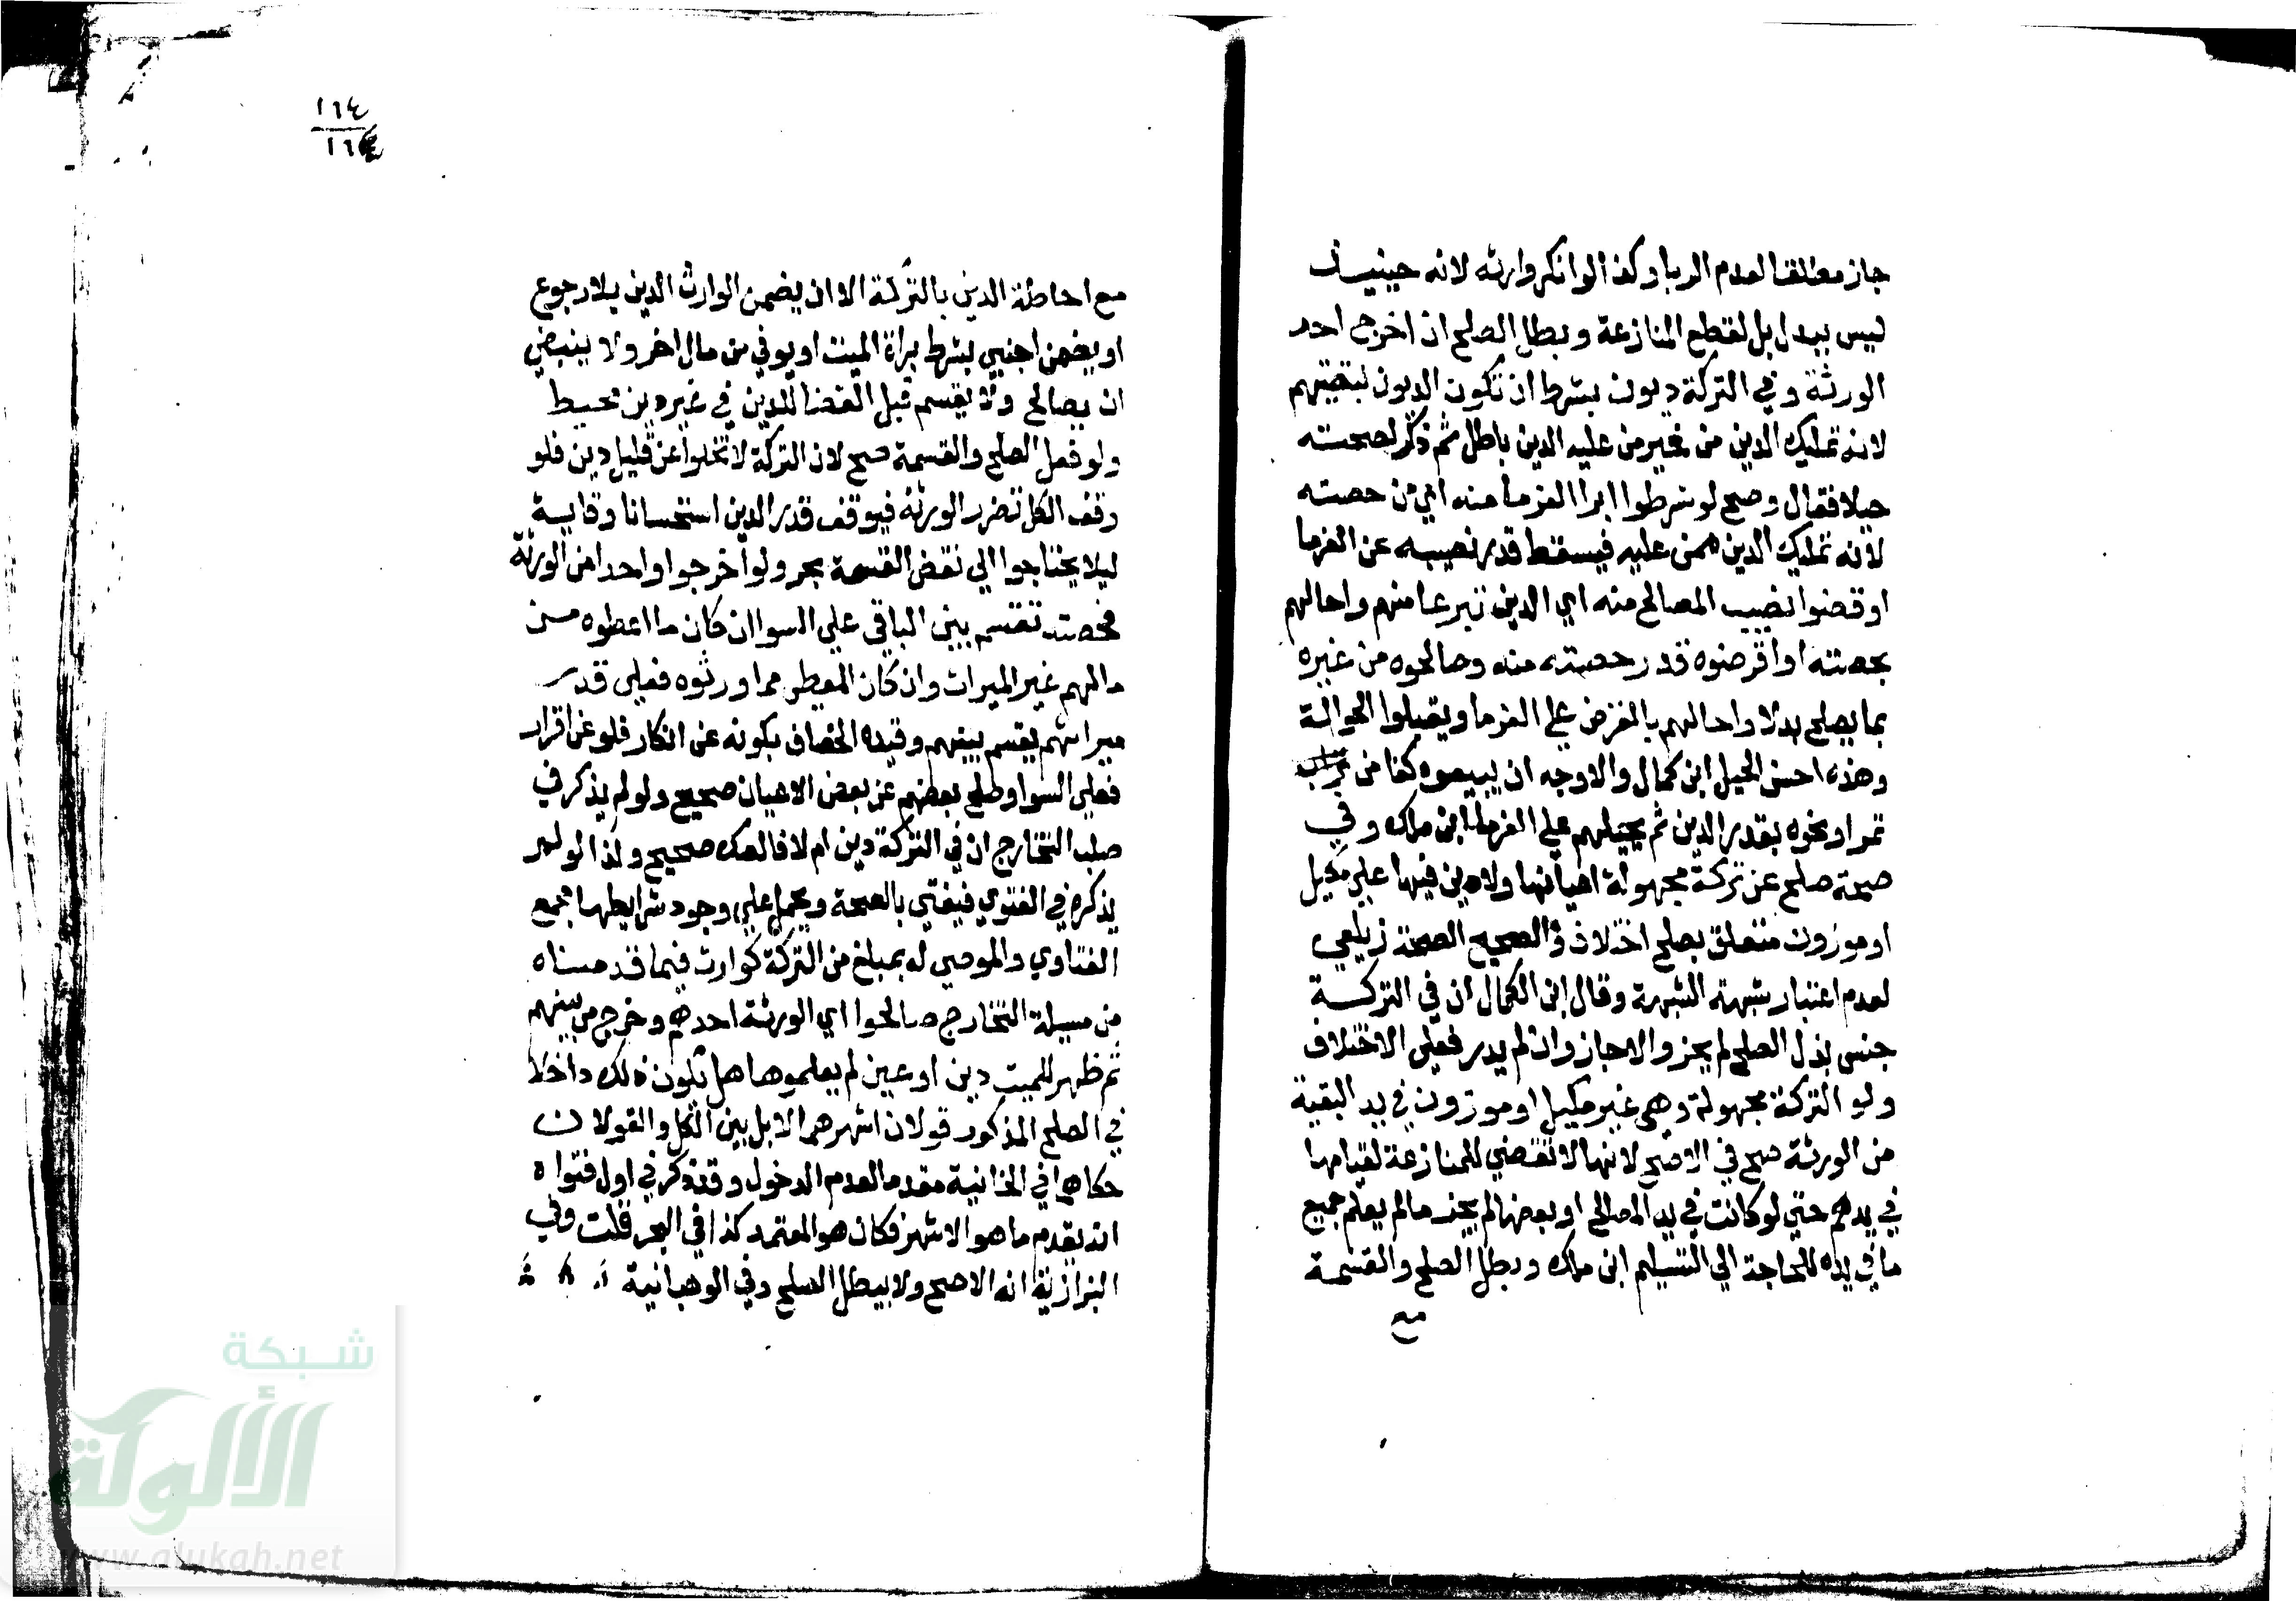 جاز مطلقا لعدم الربا وكذا لو انكر وارثه لانه حينيذ
ليس ببدل بل لقطع المنازعة وبطل الصلح ان اخرج احد
الورثة وفي التركة ديون بشرط ان تكون الديون لبقيتهم
لانه تمليك الدين من غير من عليه الدين باطل ثم ذكر لصحته
حيلا فقال وصح لو شرطوا ابرا الغرما منه اي من حصته
لانه تمليك الدين ممن عليه فيسقط قدر نصيبه عن الغرما
او قضوا نصيب المصالح منه اي الدين تبرعا منهم واحالهم
بحصته او اقرضوه قدر حصته منه وصالحوه من غيره
بما يصلح بدلا واحالهم بالقرض على الغرما ويقبلوا الحوالة
وهذه احسن الحيل ابن كمال والاوجه ان يبيعوه كفا من
تمر او نحوه بقدر الدين ثم يحيلهم على الغرما ابن ملك وفي
صحة صلح عن تركة مجهولة اعيانها ولا دين فيها على مكيل
او موزون متعلق بصلح اختلاف والصحيح الصحة زيلعي
لعدم اعتبار شبهة الشبهة وقال ابن الكمال ان في التركة
جنس بدل الصلح لم يجز والا جاز وان لم يدر فعلى الاختلاف
ولو التركة مجهولة وهي غير مكيل او موزون في يد البقية
من الورثة صح في الاصح لانها لا تفضي للمنازعة لقيامها
في يدهم حتي لو كانت في يد المصالح او بعضها لم يجز مالم يعلم جميع
ما في يده للحاجة الي التسليم ابن ملك وبطل الصلح والقسمة
مع
١٦٤
١٦٤
مع احاطة الدين بالتركة الا ان يضمن الوارث الدين بلا رجوع
او يضمن اجنبي بشرط براة الميت او يوفي من مال اخر ولا ينبغي
ان يصالح ولا يقسم قبل القضا للدين في غير دين محيط
ولو فعل الصلح والقسمة صح لان التركة لا تخلوا عن قليل دين فلو
وقف الكل تضرر الورثة فيوقف قدر الدين استحسانا وقاية
ليلا يحتاجوا الي نقض القسمة بحر ولو اخرجوا واحدا من الورثة
فحصته تقسم بين الباقي علي السوا ان كان ما اعطوه من
مالهم غير الميراث وان كان المعطى مما ورثوه فعلي قدر
ميراثهم يقسم بينهم وقيده الخصاف بكونه عن انكار فلو عن اقرار
فعلي السوا وصلح بعضهم عن بعض الاعيان صحيح ولو لم يذكر في
صلب التخارج ان في التركة دين ام لا فالصك صحيح وكذا لو لم
يذكره في الفتوي فيفتي بالصحة ويحمل علي وجود شرايطها مجمع
الفتاوي والموصي له بمبلغ من التركة كوارث فيما قدمناه
من مسيلة التخارج صالحوا اي الورثة احدهم وخرج من بينهم
ثم ظهر للميت دين او عين لم يعلموها هل تكون ذلك داخلا
في الصلح المذكور قولان اشهرهما لا بل بين الكل والقولان
حكاهما في الخانية مقدما لعدم الدخول وقد ذكر في اول فتواه
انه يقدم ما هو الاشهر فكان هو المعتمد كذا في البحر قلت وفي
البزازية انه الاصح ولا يبطل الصلح وفي الوهبانية
شبكة
الألوكة
www.alukah.net